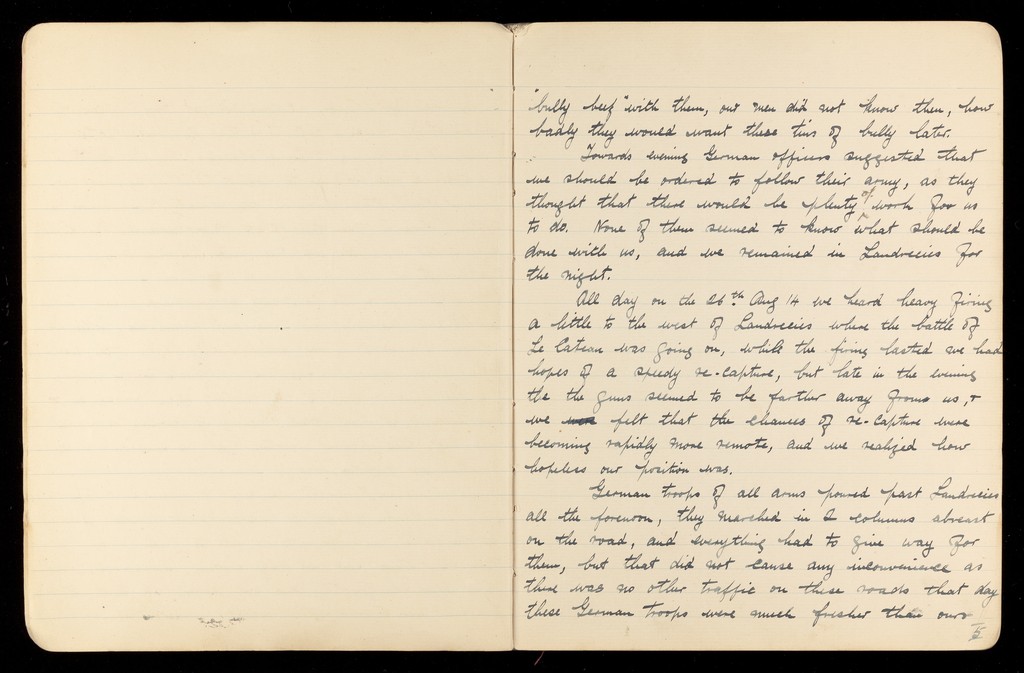 "bully beef" with them, our men did not know then, how
badly they would want these tins of bully later.
Towards evening German officers suggested that
we should be ordered to follow their army, as they
thought that there would be plenty of work for us
to do. None of them seemed to know what should be
done with us, and we remained in Landrecies for
the night.
All day on the 26th Aug 14 we heard heavy firing
a little to the west of Landrecies where the battle of
Le Cateau was going on, while the firing lasted we had
hopes of a speedy re-capture, but late in the evening
the the guns seemed to be farther away from us, &
we were felt that the chances of re-capture were
becoming rapidly more remote, and we realized how
hopeless our position was.
German troops of all arms poured past Landrecies
all the forenoon, they marched in 2 columns abreast
on the road, and everything had to give way for
them, but that did not cause any inconvenience as
there was no other traffic on these roads that day
these German troops were much fresher than ours